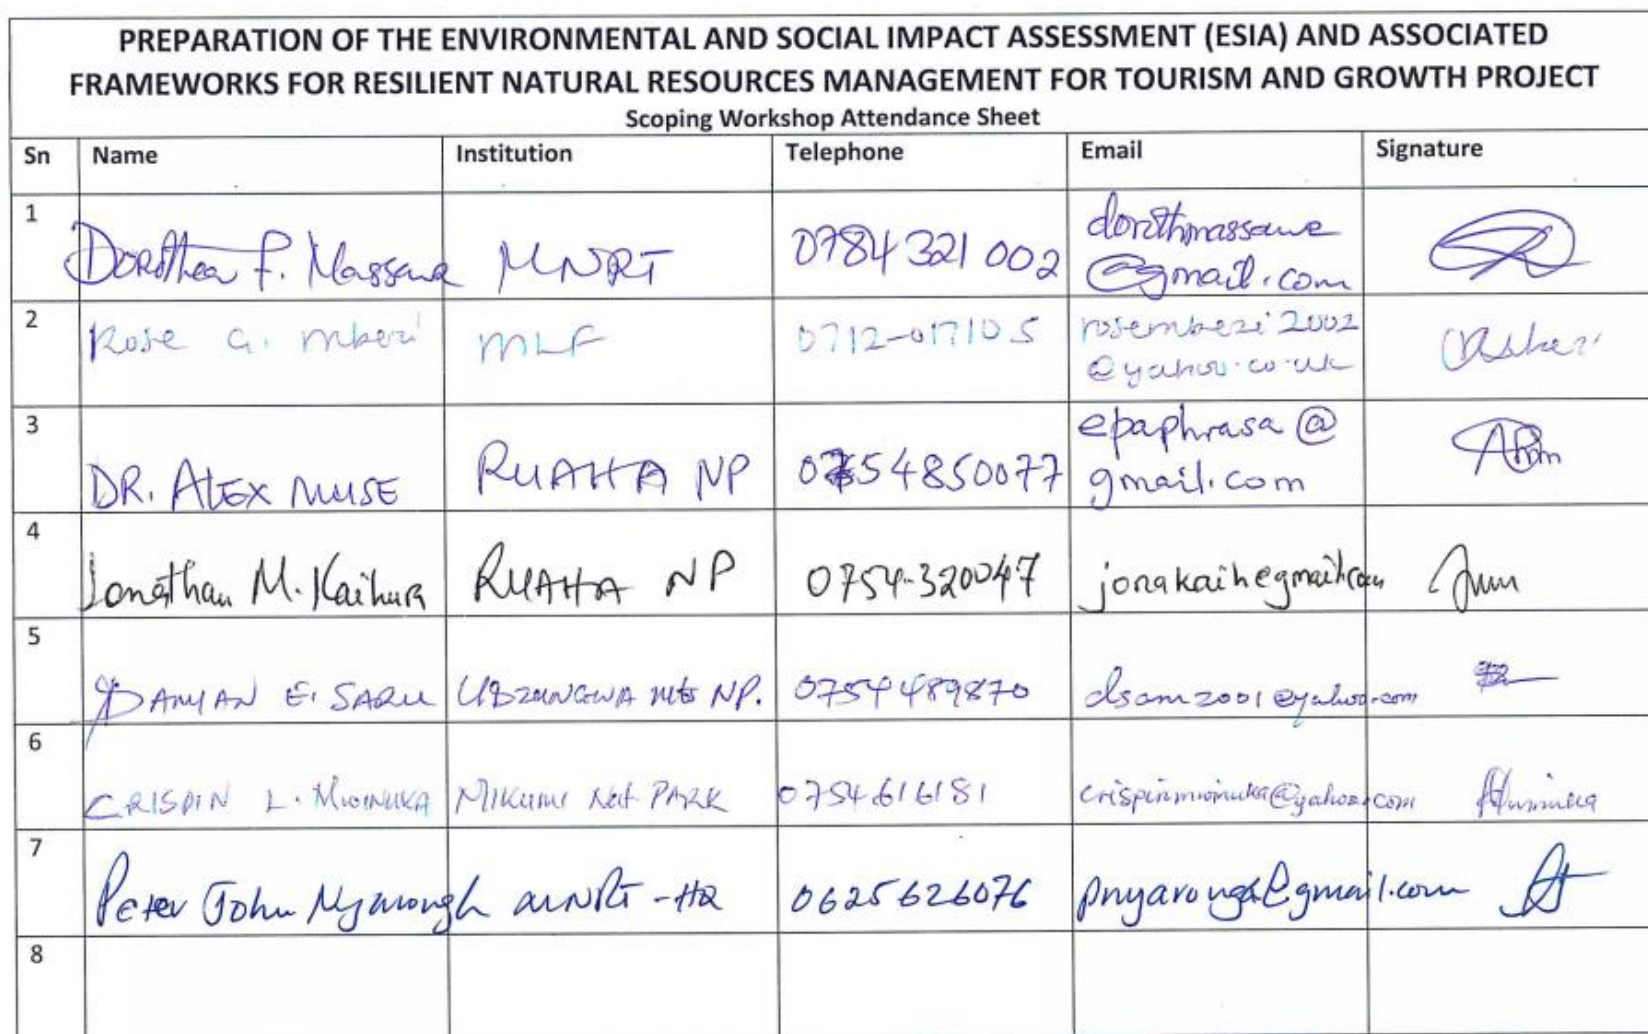 PREPARATION OF THE ENVIRONMENTAL AND SOCIAL IMPACT ASSESSMENT (ESIA) AND ASSOCIATED
FRAMEWORKS FOR RESILIENT NATURAL RESOURCES MANAGEMENT FOR TOURISM AND GROWTH PROJECT
Scoping Workshop Attendance Sheet
Sn Name Institution Telephone Email Signature
1 Dorothea F. Massawe MNRT 0784 321 002 dorothmassawe
@gmail.com
2 Rose G. mbezi MLF 0712-017105 rosembezi2002
@yahoo.co.uk
3 DR. ALEX RUAHA NP 0754850077 epaphrasa@
gmail.com
4 Jonathan M. Kaihura RUAHA NP 0754-320047 jonakaih@gmail.com
5 DAMIAN E. SARU UDZUNGWA Mts NP. 0754489870 dsam2001@yahoo.com
6 CRISPIN L. MWINUKA MIKUMI Nat. PARK 0754616181 crispinmwinuka@yahoo.com
7 Peter John Nyarongh MNRT-HQ 0625626076 pnyarongh@gmail.com
8